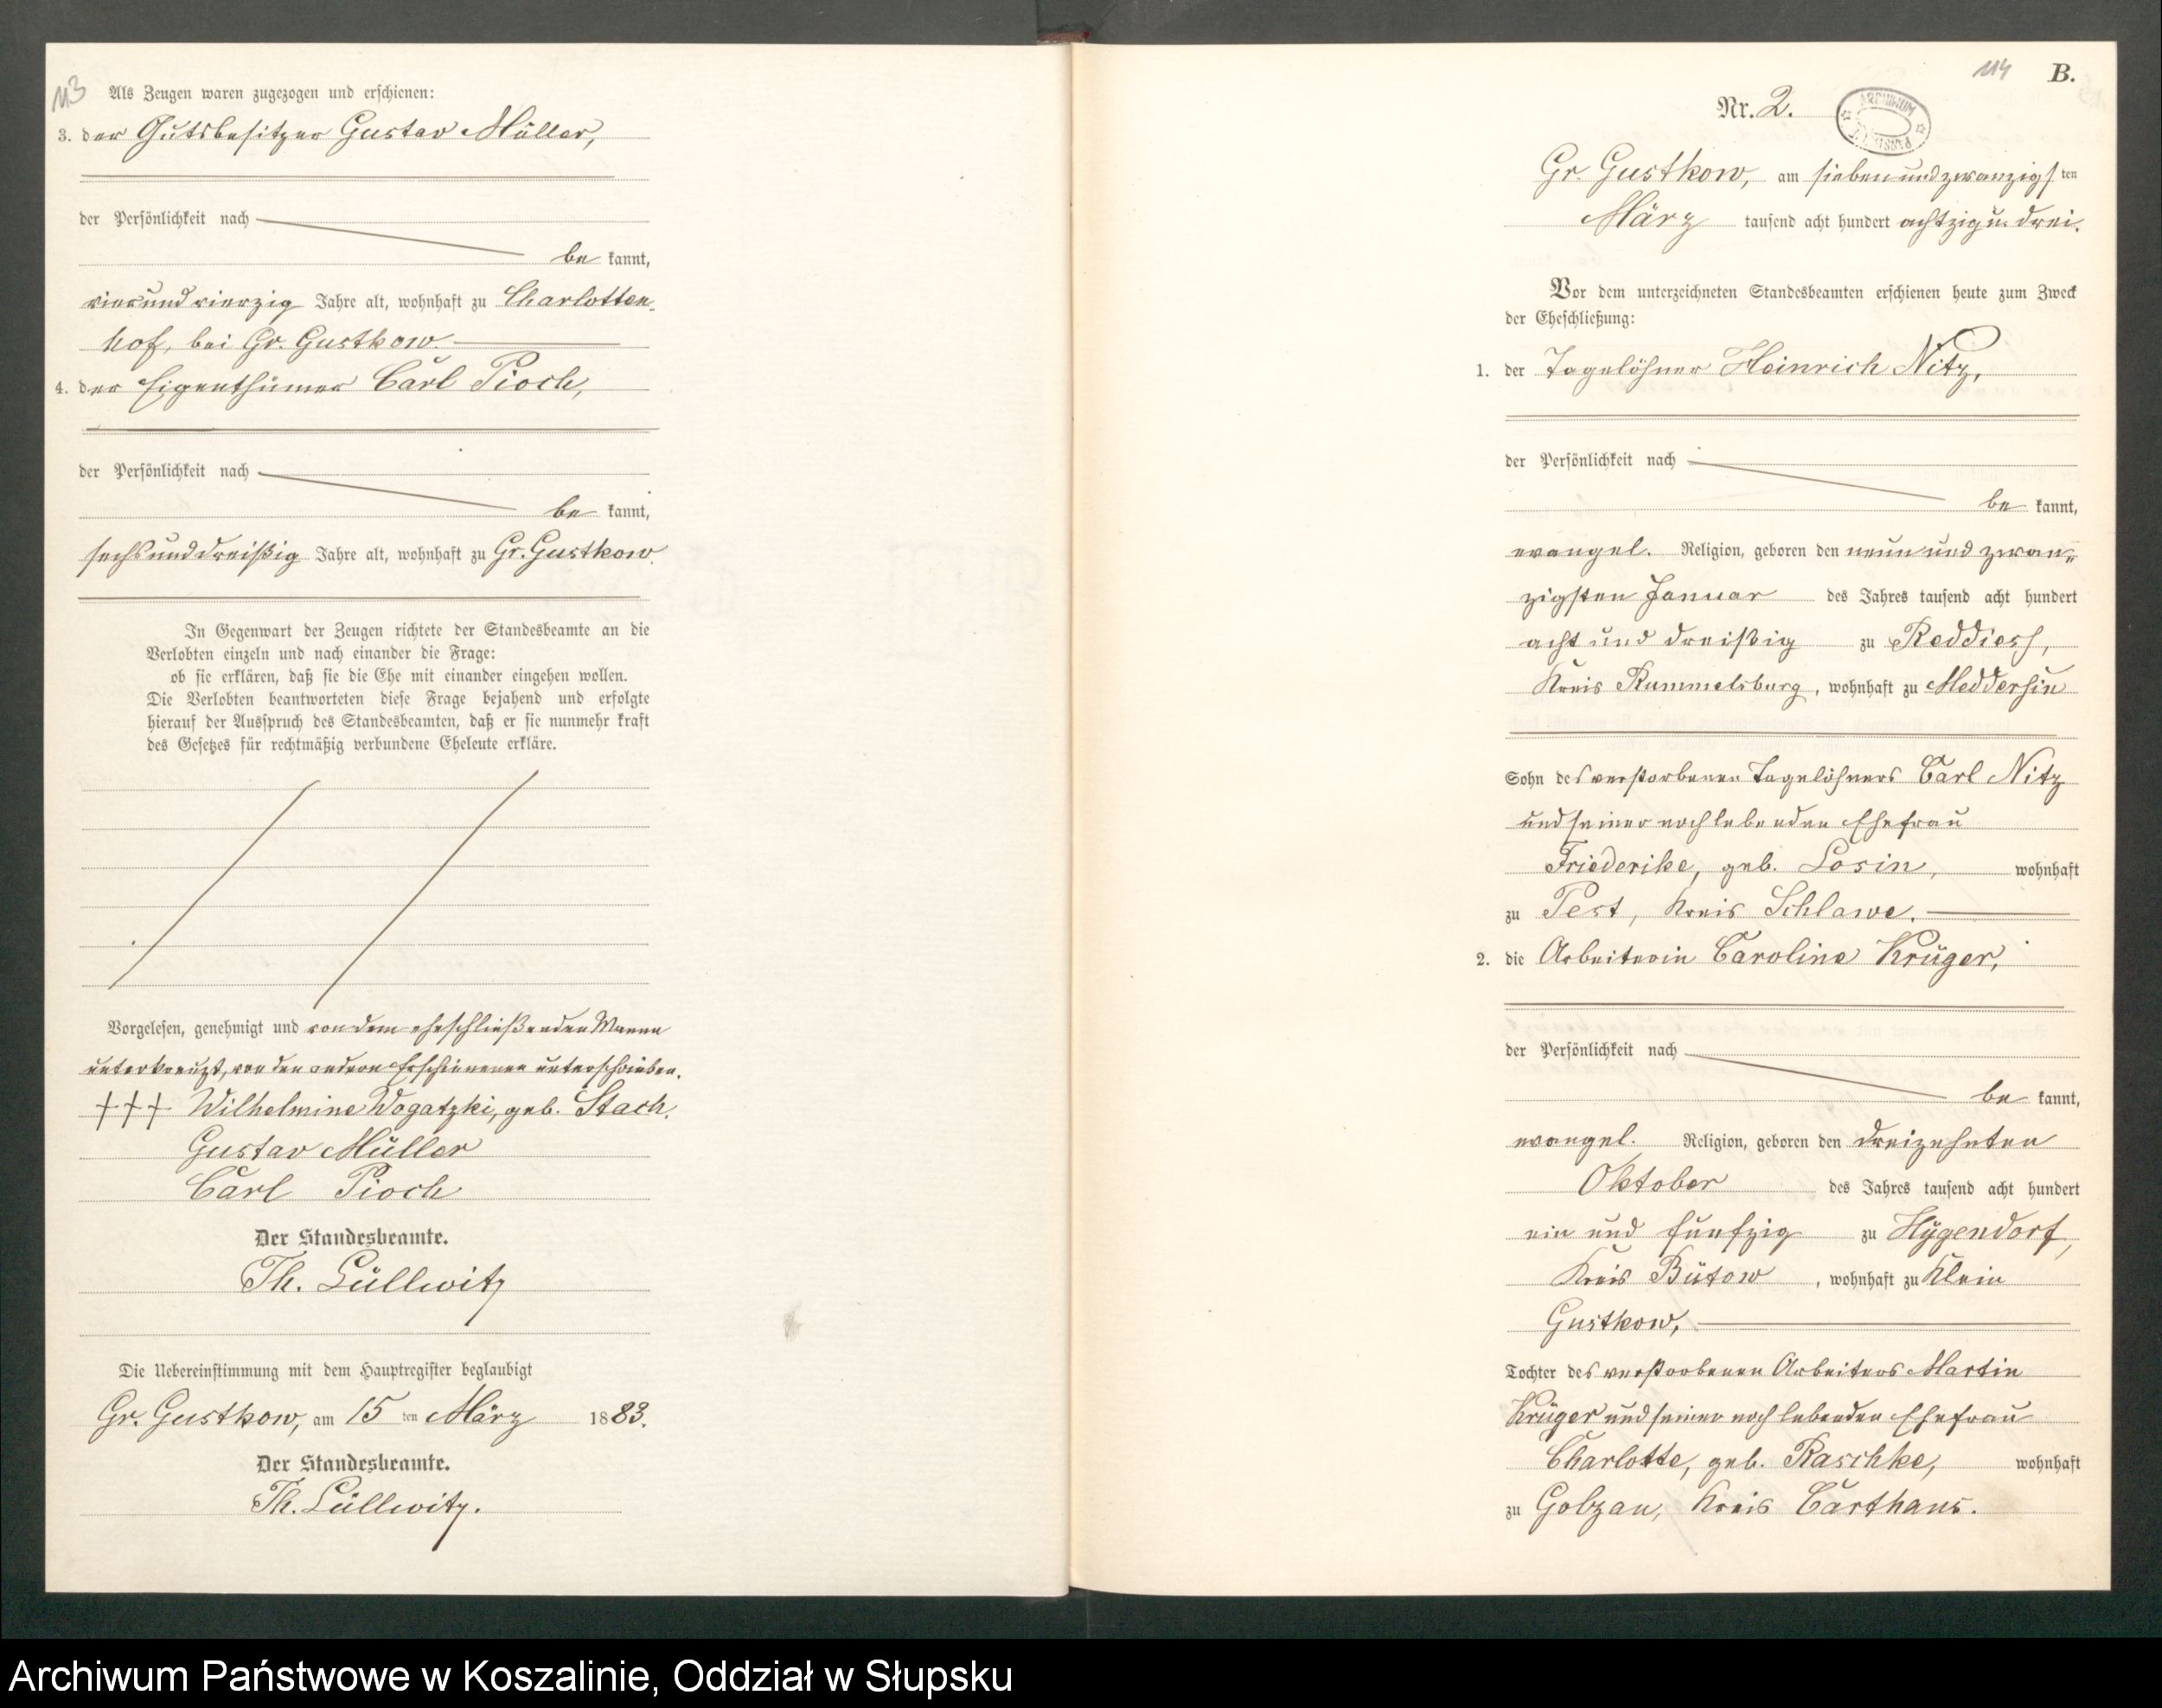 113
Als Zeugen waren zugezogen und erschienen:
3. der Gutsbesitzer Gustav Müller,
der Persönlichkeit nach
be kannt,
vierundvierzig Jahre alt, wohnhaft zu Charlotten-
hof, bei Gr. Gustkow.
4. der Eigenthümer Carl Pioch,
der Persönlichkeit nach
be kannt,
sechsunddreißig Jahre alt, wohnhaft zu Gr. Gustkow.
In Gegenwart der Zeugen richtete der Standesbeamte an die
Verlobten einzeln und nach einander die Frage:
ob sie erklären, daß sie die Ehe mit einander eingehen wollen.
Die Verlobten beantworteten diese Frage bejahend und erfolgte
hierauf der Ausspruch des Standesbeamten, daß er sie nunmehr kraft
des Gesetzes für rechtmäßig verbundene Eheleute erkläre.
Vorgelesen, genehmigt und von dem eheschließenden Manne
unterkreuzt, von den andern Erschienenen unterschrieben.
+++ Wilhelmine Wogatzki, geb. Stach.
Gustav Müller
Carl Pioch
Der Standesbeamte.
Th. Lüllwitz
Die Uebereinstimmung mit dem Hauptregister beglaubigt
Gr. Gustkow, am 15 ten März 1883.
Der Standesbeamte.
Th. Lüllwitz.
114 B.
Nr. 2.
ARCHIWUM
Gr. Gustkow, am siebenundzwanzigs ten
März tausend acht hundert achtzig u. drei.
Vor dem unterzeichneten Standesbeamten erschienen heute zum Zweck
der Eheschließung:
1. der Tagelöhner Heinrich Nitz,
der Persönlichkeit nach
be kannt,
evangel. Religion, geboren den neun und zwan-
zigsten Januar des Jahres tausend acht hundert
acht und dreißig zu Reddies,
Kreis Rummelsburg, wohnhaft zu Meddersin
Sohn des verstorbenen Tagelöhners Carl Nitz
und seiner noch lebenden Ehefrau
Friederike, geb. Losin, wohnhaft
zu Pest, Kreis Schlawe.
2. die Arbeiterin Caroline Krüger,
der Persönlichkeit nach
be kannt,
evangel. Religion, geboren den dreizehnten
Oktober des Jahres tausend acht hundert
ein und fünfzig zu Hygendorf,
Kreis Bütow, wohnhaft zu Klein
Gustkow,
Tochter des verstorbenen Arbeiters Martin
Krüger und seiner noch lebenden Ehefrau
Charlotte, geb. Raschke, wohnhaft
zu Golzau, Kreis Carthaus.
Archiwum Państwowe w Koszalinie, Oddział w Słupsku